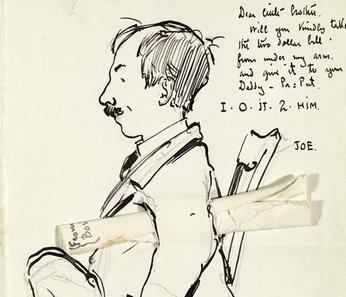 Dear little brother.
Will you kindly take
the two dollar bill
from under my arm.
and give it to your
Daddy - Pa = Put.
I. O. IT. 2. HIM.
JOE.
From